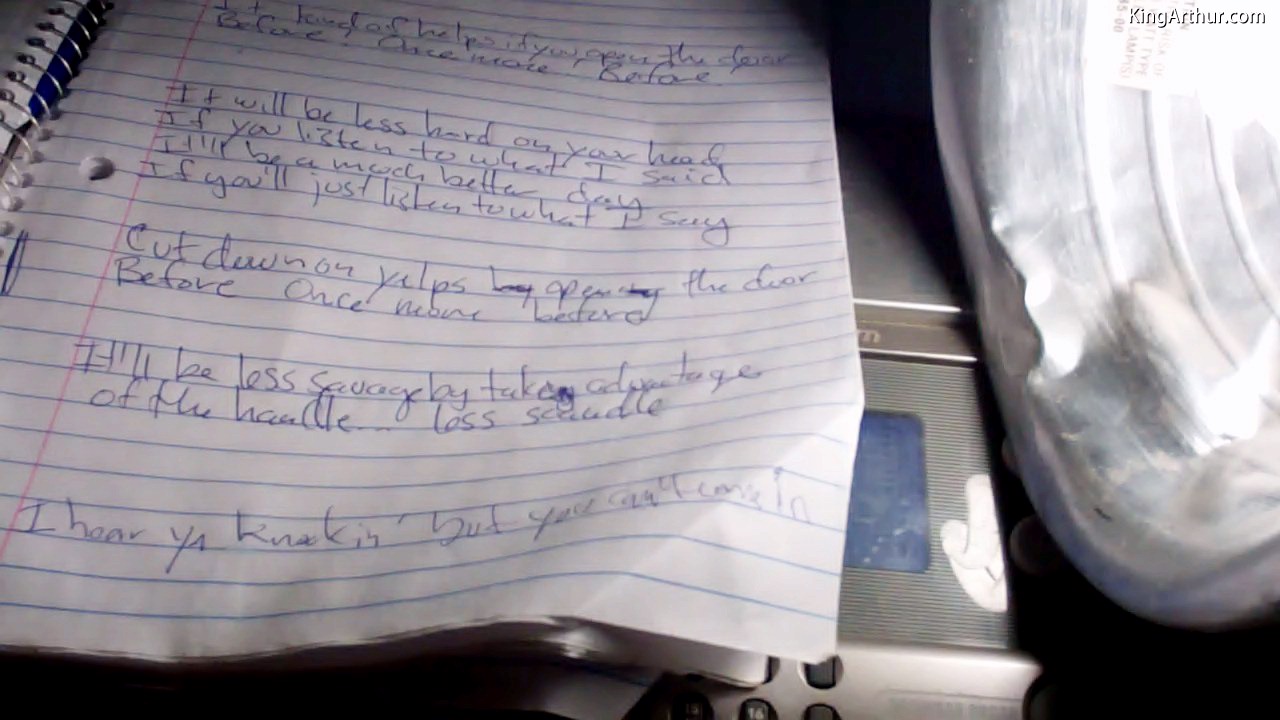 KingArthur.com
It kind of helps if you open the door
Before Once more Before
It will be less hard on your head
If you listen to what I said
It'll be a much better day
If you'll just listen to what I say
Cut down on yelps by opening the door
Before Once more before
It'll be less savage by taking advantage
of the handle... less scandle
I hear ya knockin' but you can't come In